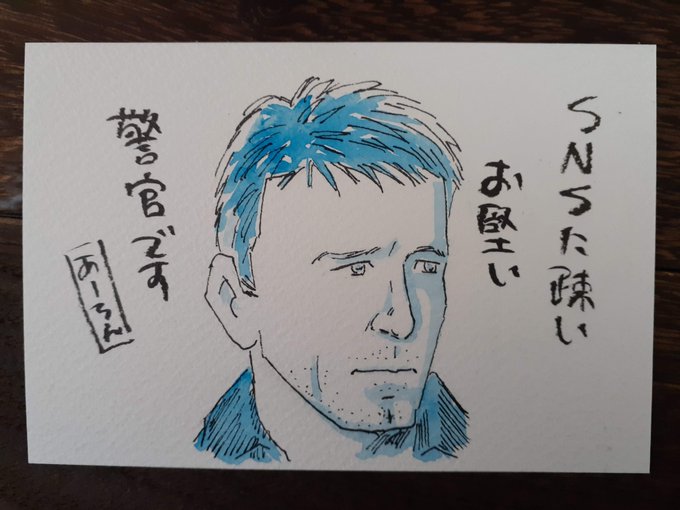 SNSに疎い
お堅い
警官です
あーろん